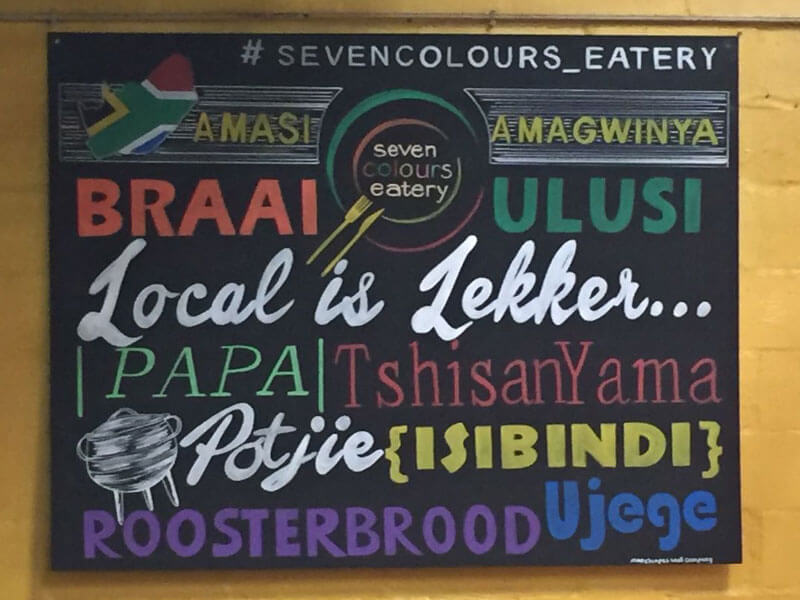 # SEVENCOLOURS_EATERY
AMASI
seven
colours
eatery
AMAGWINYA
BRAAI
ULUSI
Local is Lekker...
|PAPA| TshisanYama
Potjie {ISIBINDI}
ROOSTERBROOD Ujege